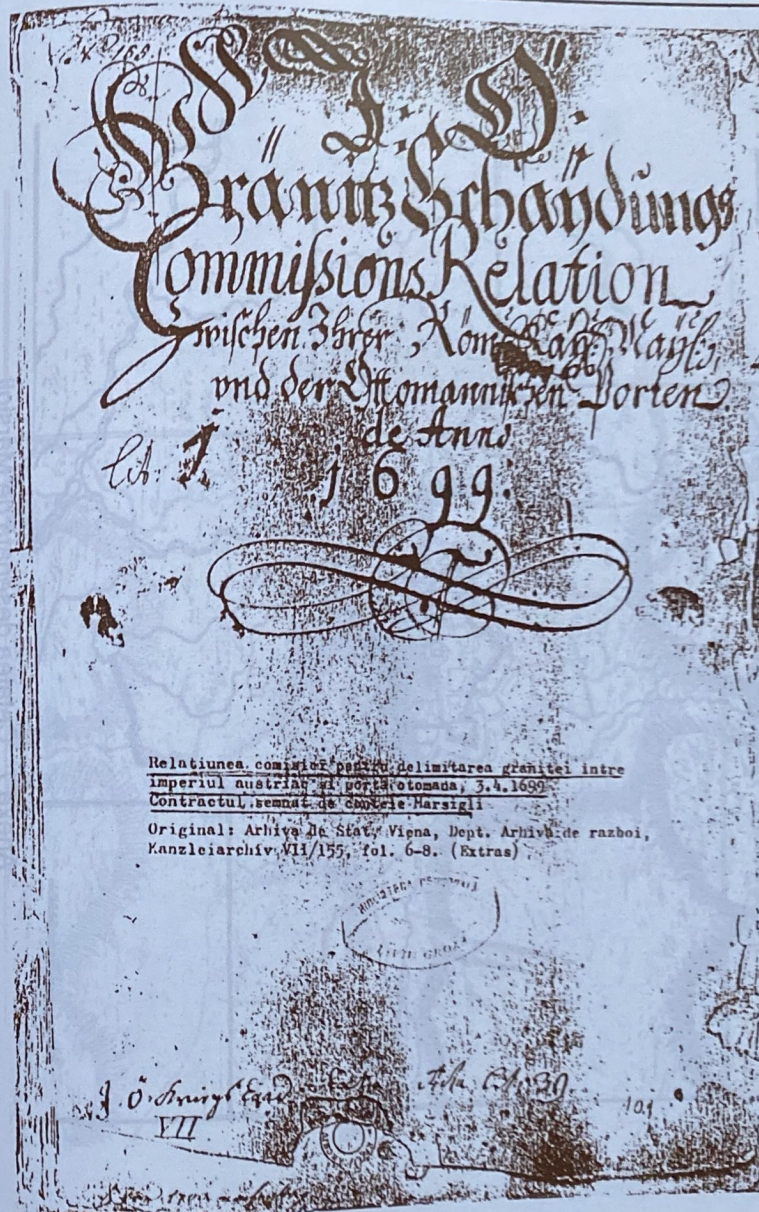 I: Ö:
Gränitz Schaÿdungs
Commissions Relation
Zwischen Ihrer Röm: Kaÿ: Maÿl:
vnd der Ottomannischen Porten
de Anno
lit. 1 1699.
Relatiunea comisiei pentru delimitarea granitei intre
imperiul austriac si porta otomana, 3.4.1699
Contractul semnat de contele Marsigli
Original: Arhiva de Stat, Viena, Dept. Arhiva de razboi,
Kanzleiarchiv VII/155, fol. 6-8. (Extras)
VII
101